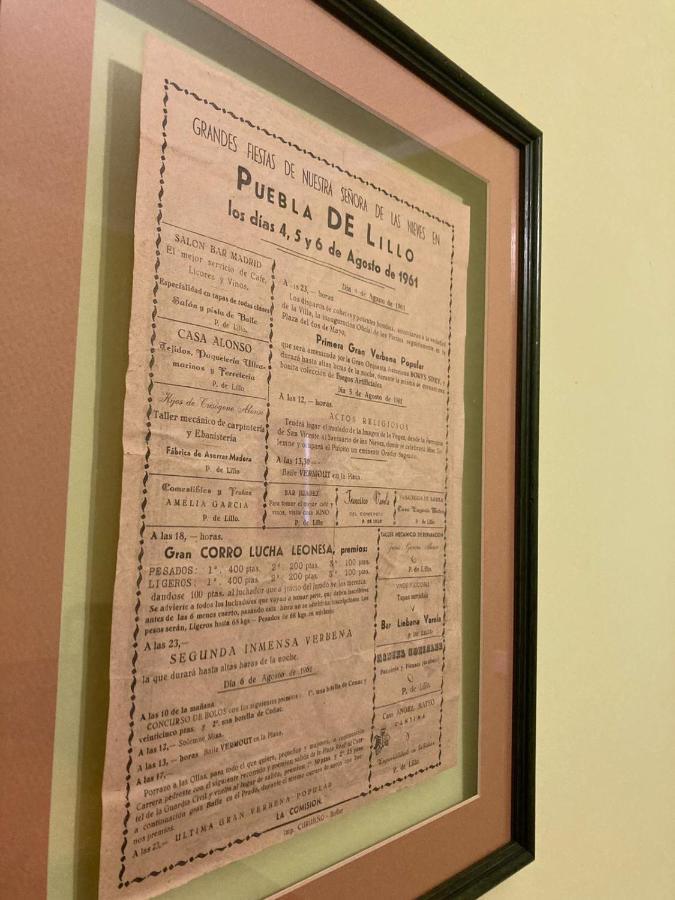 GRANDES FIESTAS DE NUESTRA SEÑORA DE LAS NIEVES EN
PUEBLA DE LILLO
los días 4, 5 y 6 de Agosto de 1961
SALON BAR MADRID
El mejor servicio de Café,
Licores y Vinos.
Especialidad en tapas de todas clases
Salón y pista de Baile
P. de Lillo.
CASA ALONSO
Tejidos, Paquetería Ultra-
marinos y Ferretería
P. de Lillo
Hijos de Crisógono Alonso
Taller mecánico de carpintería
y Ebanistería
Fábrica de Aserrar Madera
P. de Lillo
Comestibles y Frutas
AMELIA GARCIA
P. de Lillo.
Día 4 de Agosto de 1961
A las 23,— horas
Los disparos de cohetes y potentes bombas, anunciarán a la
de la Villa, la inauguración Oficial de las Fiestas, seguidamente en la
Plaza del Dos de Mayo.
Primera Gran Verbena Popular
que será amenizada por la Gran Orquesta
durará hasta altas horas de la noche, durante la misma se quemará una
bonita colección de Fuegos Artificiales.
Día 5 de Agosto de 1961
A las 12,— horas.
ACTOS RELIGIOSOS
Tendrá lugar el traslado de la Imagen de la Virgen, desde la Parroquia
de San Vicente al Santuario de las Nieves, donde se celebrará Misa So-
lemne y ocupará el Púlpito un eminente Orador Sagrado.
A las 13,30 —
Baile VERMOUT en la Plaza.
BAR JUAREZ
Para tomar el mejor café y
vinos, visite casa
P. de Lillo
Francisco Varela
P. DE LILLO
P. de Lillo
A las 18,— horas.
Gran CORRO LUCHA LEONESA, premios:
PESADOS: 1º. 400 ptas. 2º 200 ptas. 3º 100 ptas.
LIGEROS: 1º. 400 ptas. 2º 200 ptas. 3º 100 ptas.
dándose 100 ptas. al luchador que a juicio del jurado se las merezca.
Se advierte a todos los luchadores que vayan a tomar parte, que deben inscribirse
antes de las 6 menos cuarto, pasando esta hora no se admitirán inscripciones. Los
pesos serán, Ligeros hasta 68 kgs — Pesados de 68 kgs en adelante
A las 23,—
SEGUNDA INMENSA VERBENA
la que durará hasta altas horas de la noche.
Día 6 de Agosto de 1961
A las 10 de la mañana
CONCURSO DE BOLOS con los siguientes premios: 1º. una botella de Coñac y
veinticinco ptas. y 2º. una botella de Coñac.
A las 12,— Solemne Misa.
A las 13,— horas Baile VERMOUT en la Plaza.
A las 17,—
Porrazo a las Ollas, para todo el que quiera, pequeños y mayores, a continuación
Carrera pedestre con el siguiente recorrido y premios: salida de la Plaza Real al Cuar-
tel de la Guardia Civil y vuelta al lugar de salida, premios: 1º 50 ptas. y 2º 25 ptas
a continuación gran Baile en el Prado, durante el mismo carreras de sacos con bue-
nos premios.
A las 23.— ULTIMA GRAN VERBENA POPULAR
LA COMISION
TALLER MECANICO DE REPARACION
P. de Lillo
VINOS Y LICORES
Tapas servidas
Bar Liebana Varela
P. DE LILLO
MANUEL GONZALEZ
P. de Lillo.
Casa ANGEL MATEO
CANTINA
Y
P. de Lillo